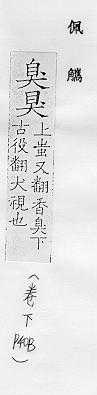 佩觿
臭狊
上蚩又翻香臭下
古役翻犬視也
(卷下 P40B)